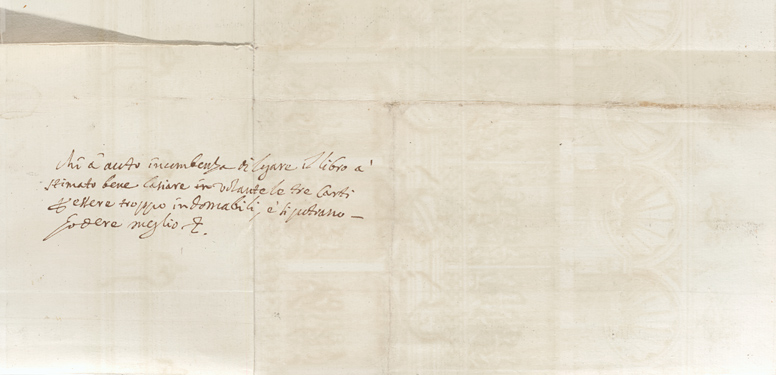 Chi à auto incumbenza di legare il libro à
stimato bene lasiare in volante le tre Carti
p essere troppo indomabili, è si potrano
Godere meglio &.